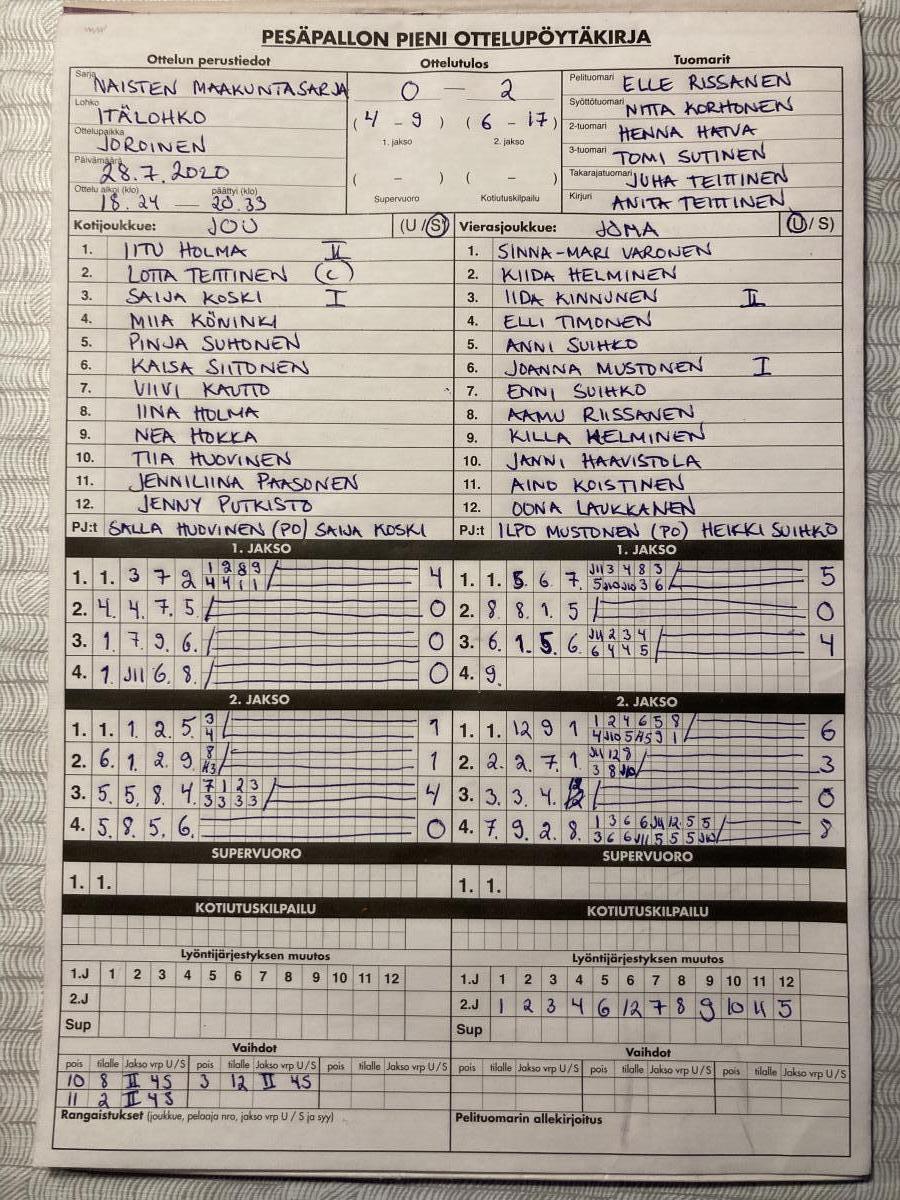 PESÄPALLON PIENI OTTELUPÖYTÄKIRJA
Ottelun perustiedot Ottelutulos Tuomarit
Sarja NAISTEN MAAKUNTASARJA
Lohko ITÄLOHKO
Ottelupaikka JOROINEN
Päivämäärä 28.7.2020
Ottelu alkoi (klo) 18.24 — päättyi (klo) 20.33
0 — 2
(4 - 9) (6 - 17)
1. jakso 2. jakso
( - ) ( - )
Supervuoro Kotiutuskilpailu
Pelituomari ELLE RISSANEN
Syöttötuomari NITTA KORHONEN
2-tuomari HENNA HATVA
3-tuomari TOMI SUTINEN
Takarajatuomari JUHA TEITTINEN
Kirjuri ANITA TEITTINEN
Kotijoukkue: JOU (U/S)
1. IITU HOLMA II
2. LOTTA TEITTINEN (C)
3. SAIJA KOSKI I
4. MIIA KÖNINKI
5. PINJA SUHONEN
6. KAISA SIITONEN
7. VIIVI KAUTTO
8. IINA HOLMA
9. NEA HOKKA
10. TIIA HUOVINEN
11. JENNILIINA PAASONEN
12. JENNY PUTKISTO
PJ:t SALLA HUOVINEN (PO) SAIJA KOSKI
Vierasjoukkue: JOMA (U/S)
1. SINNA-MARI VARONEN
2. KIIDA HELMINEN
3. IIDA KINNUNEN II
4. ELLI TIMONEN
5. ANNI SUIHKO
6. JOANNA MUSTONEN I
7. ENNI SUIHKO
8. AAMU RIISSANEN
9. KILLA HELMINEN
10. JANNI HAAVISTOLA
11. AINO KOISTINEN
12. OONA LAUKKANEN
PJ:t ILPO MUSTONEN (PO) HEIKKI SUIHKO
1. JAKSO
1. 1. 3 7 2 1 2 8 9 4
4 4 1 1
2. 4. 4. 7. 5. 0
3. 1 7. 9. 6. 0
4. 1 JII 6. 8. 0
1. JAKSO
1. 1. 5. 6. 7. JII 3 4 8 3 5
5 J10 J10 3 6
2. 8 8. 1. 5 0
3. 6. 1. 5. 6. JII 2 3 4 4
6 4 4 5
4. 9.
2. JAKSO
1. 1. 1. 2. 5. 3 1
4
2. 6. 1. 2. 9. 8 1
H3
3. 5. 5. 8 4. 7 1 2 3 4
3 3 3 3
4. 5. 8. 5. 6. 0
2. JAKSO
1. 1. 12 9 1 1 2 4 6 5 8 6
4 J10 5 H5 9 1
2. 2. 2. 7. 1. JII 12 8 3
3 8 J10
3. 3. 3. 4. 0
4. 7. 9. 2. 8. 1 3 6 6 JII 12 5 5 8
3 6 6 JII 5 5 5 J10
SUPERVUORO
1. 1.
SUPERVUORO
1. 1.
KOTIUTUSKILPAILU
KOTIUTUSKILPAILU
Lyöntijärjestyksen muutos
1.J 1 2 3 4 5 6 7 8 9 10 11 12
2.J
Sup
Lyöntijärjestyksen muutos
1.J 1 2 3 4 5 6 7 8 9 10 11 12
2.J 1 2 3 4 6 12 7 8 9 10 11 5
Sup
Vaihdot
pois tilalle Jakso vrp U/S pois tilalle Jakso vrp U/S pois tilalle Jakso vrp U/S
10 8 II 4S 3 12 II 4S
11 2 II 4S
Vaihdot
pois tilalle Jakso vrp U/S pois tilalle Jakso vrp U/S pois tilalle Jakso vrp U/S
Rangaistukset (joukkue, pelaaja nro, jakso vrp U / S ja syy)
Pelituomarin allekirjoitus